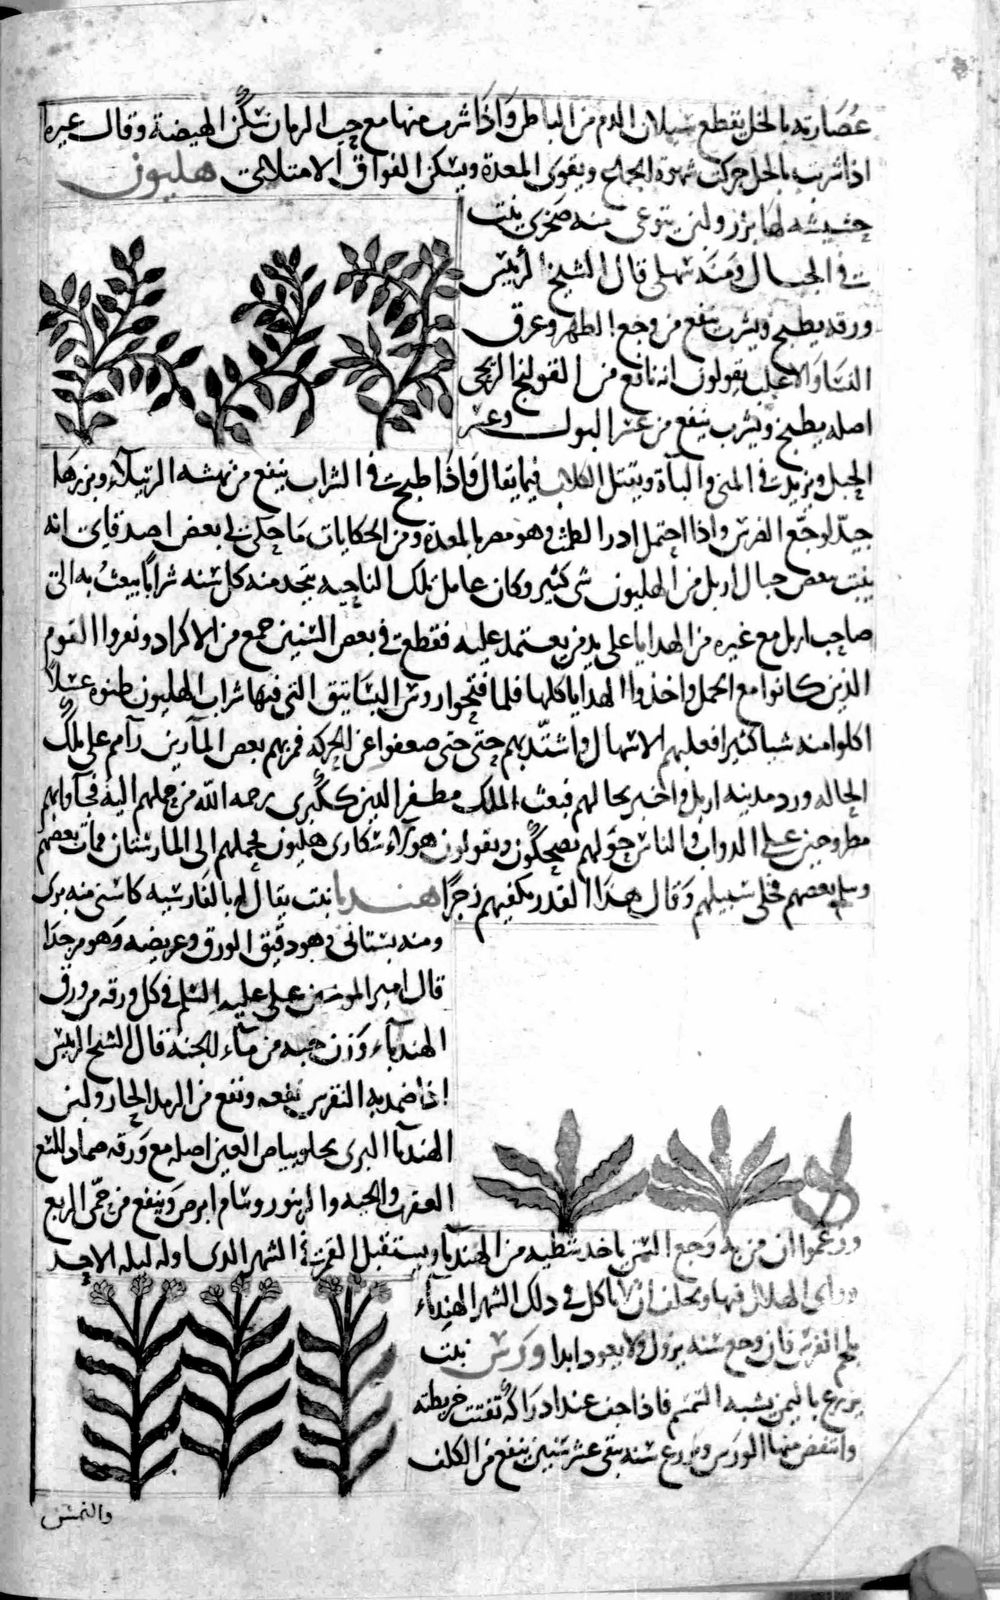 عصارته بالخل يقطع سيلان الدم من الباطن واذا شرب منها مع حب الرمان سكن الهيضة وقال غيره
اذا شربت بالخل حركت شهوة الجماع ويقوى المعدة ويسكن الفواق الامتلائى هليون
حشيشه لها بزر ولبن يتوعى منه صخرى ينبت
فى الجبال ومنه سهلى قال الشيخ الرئيس
ورقه يطبخ ويشرب ينفع من وجع الظهر وعرق
النسا والاعلب يقولون انه نافع من القولنج الريحى
اصله يطبخ ويشرب ينفع من عسر البول وعسر
الحبل ويزيد فى المنى والباة ويقتل الكلاب فيما يقال واذا طبخت فى الشراب ينفع من نهشه الرتيلاء وبزرها
جيد لوجع الضرس واذا احتمل ادر الطمث وهو مضر بالمعدة ومن الحكايات ما حكى لى بعض اصدقاى انه
ينبت ببعض جبال اربل من الهليون شى كثير وكان عامل تلك الناحيه يتخذ منه كل سنه شرابا يبعث به الى
صاحب اربل مع غيره من الهدايا على يد من يعتمد عليه فقطعت فى بعض السنين جمع من الاكراد ونعروا القوم
الذين كانوا مع الحمل واخذوا الهدايا كلها فلما فتحوا روس البساتيق التى فيها شراب الهليون ظنوه عسلا
اكلوا منه شيا كثيرا فغلبهم الاسهال واشتد بهم حتى حتى ضعفوا عن الحركه فمر بهم بعض المارين رآهم على تلك
الحاله ورد مدينه اربل واخبر بحالهم فبعث الملك مظفر الدين ككبرى رحمه الله من حملهم اليه فجاوا بهم
مطروحين على الدواب والناس حولهم يضحكون ويقولون هولاء سكارى هليون فحملهم الى المارستان فمات بعضهم
وسلم بعضهم فخلى سبيلهم وقال هذا القدر يكفيهم زجرا هندبا نبت يقال له بالفارسيه كاسنى منه برى
ومنه بستانى وهو دقيق الورق وعريضه وهو مر جدا
قال امير المومنين على عليه السلم فى كل ورقه من ورق
الهندباء وزن حبه من ماء الجنة قال الشيخ الرئيس
اذا ضمد به النقرس نفعه ونفع من الرمد الحار ولبن
الهندبا البرى يجلو بياض العين اصله مع ورقه ضماد للسع
العقرب والحيه والزنبور وسام ابرص وينفع من حمى الربع
وزعموا ان من به وجع السن ياخذ شظيه من الهندبا ويستقبل القمر فى الشهر الذى اوله ليله الاحد
وراى الهلال فيها ويحلف ان لا ياكل فى ذلك الشهر الهندباء
ولحم الفرس فان وجع سنه يزول ولا يعود ابدا ورس نبت
يزرع باليمن يشبه السمسم فاذا جف عند ادراكه تفتت خريطته
وانتفض منها الورس ويزرع سنه يبقى عشر سنين ينفع من الكلف
والنمش